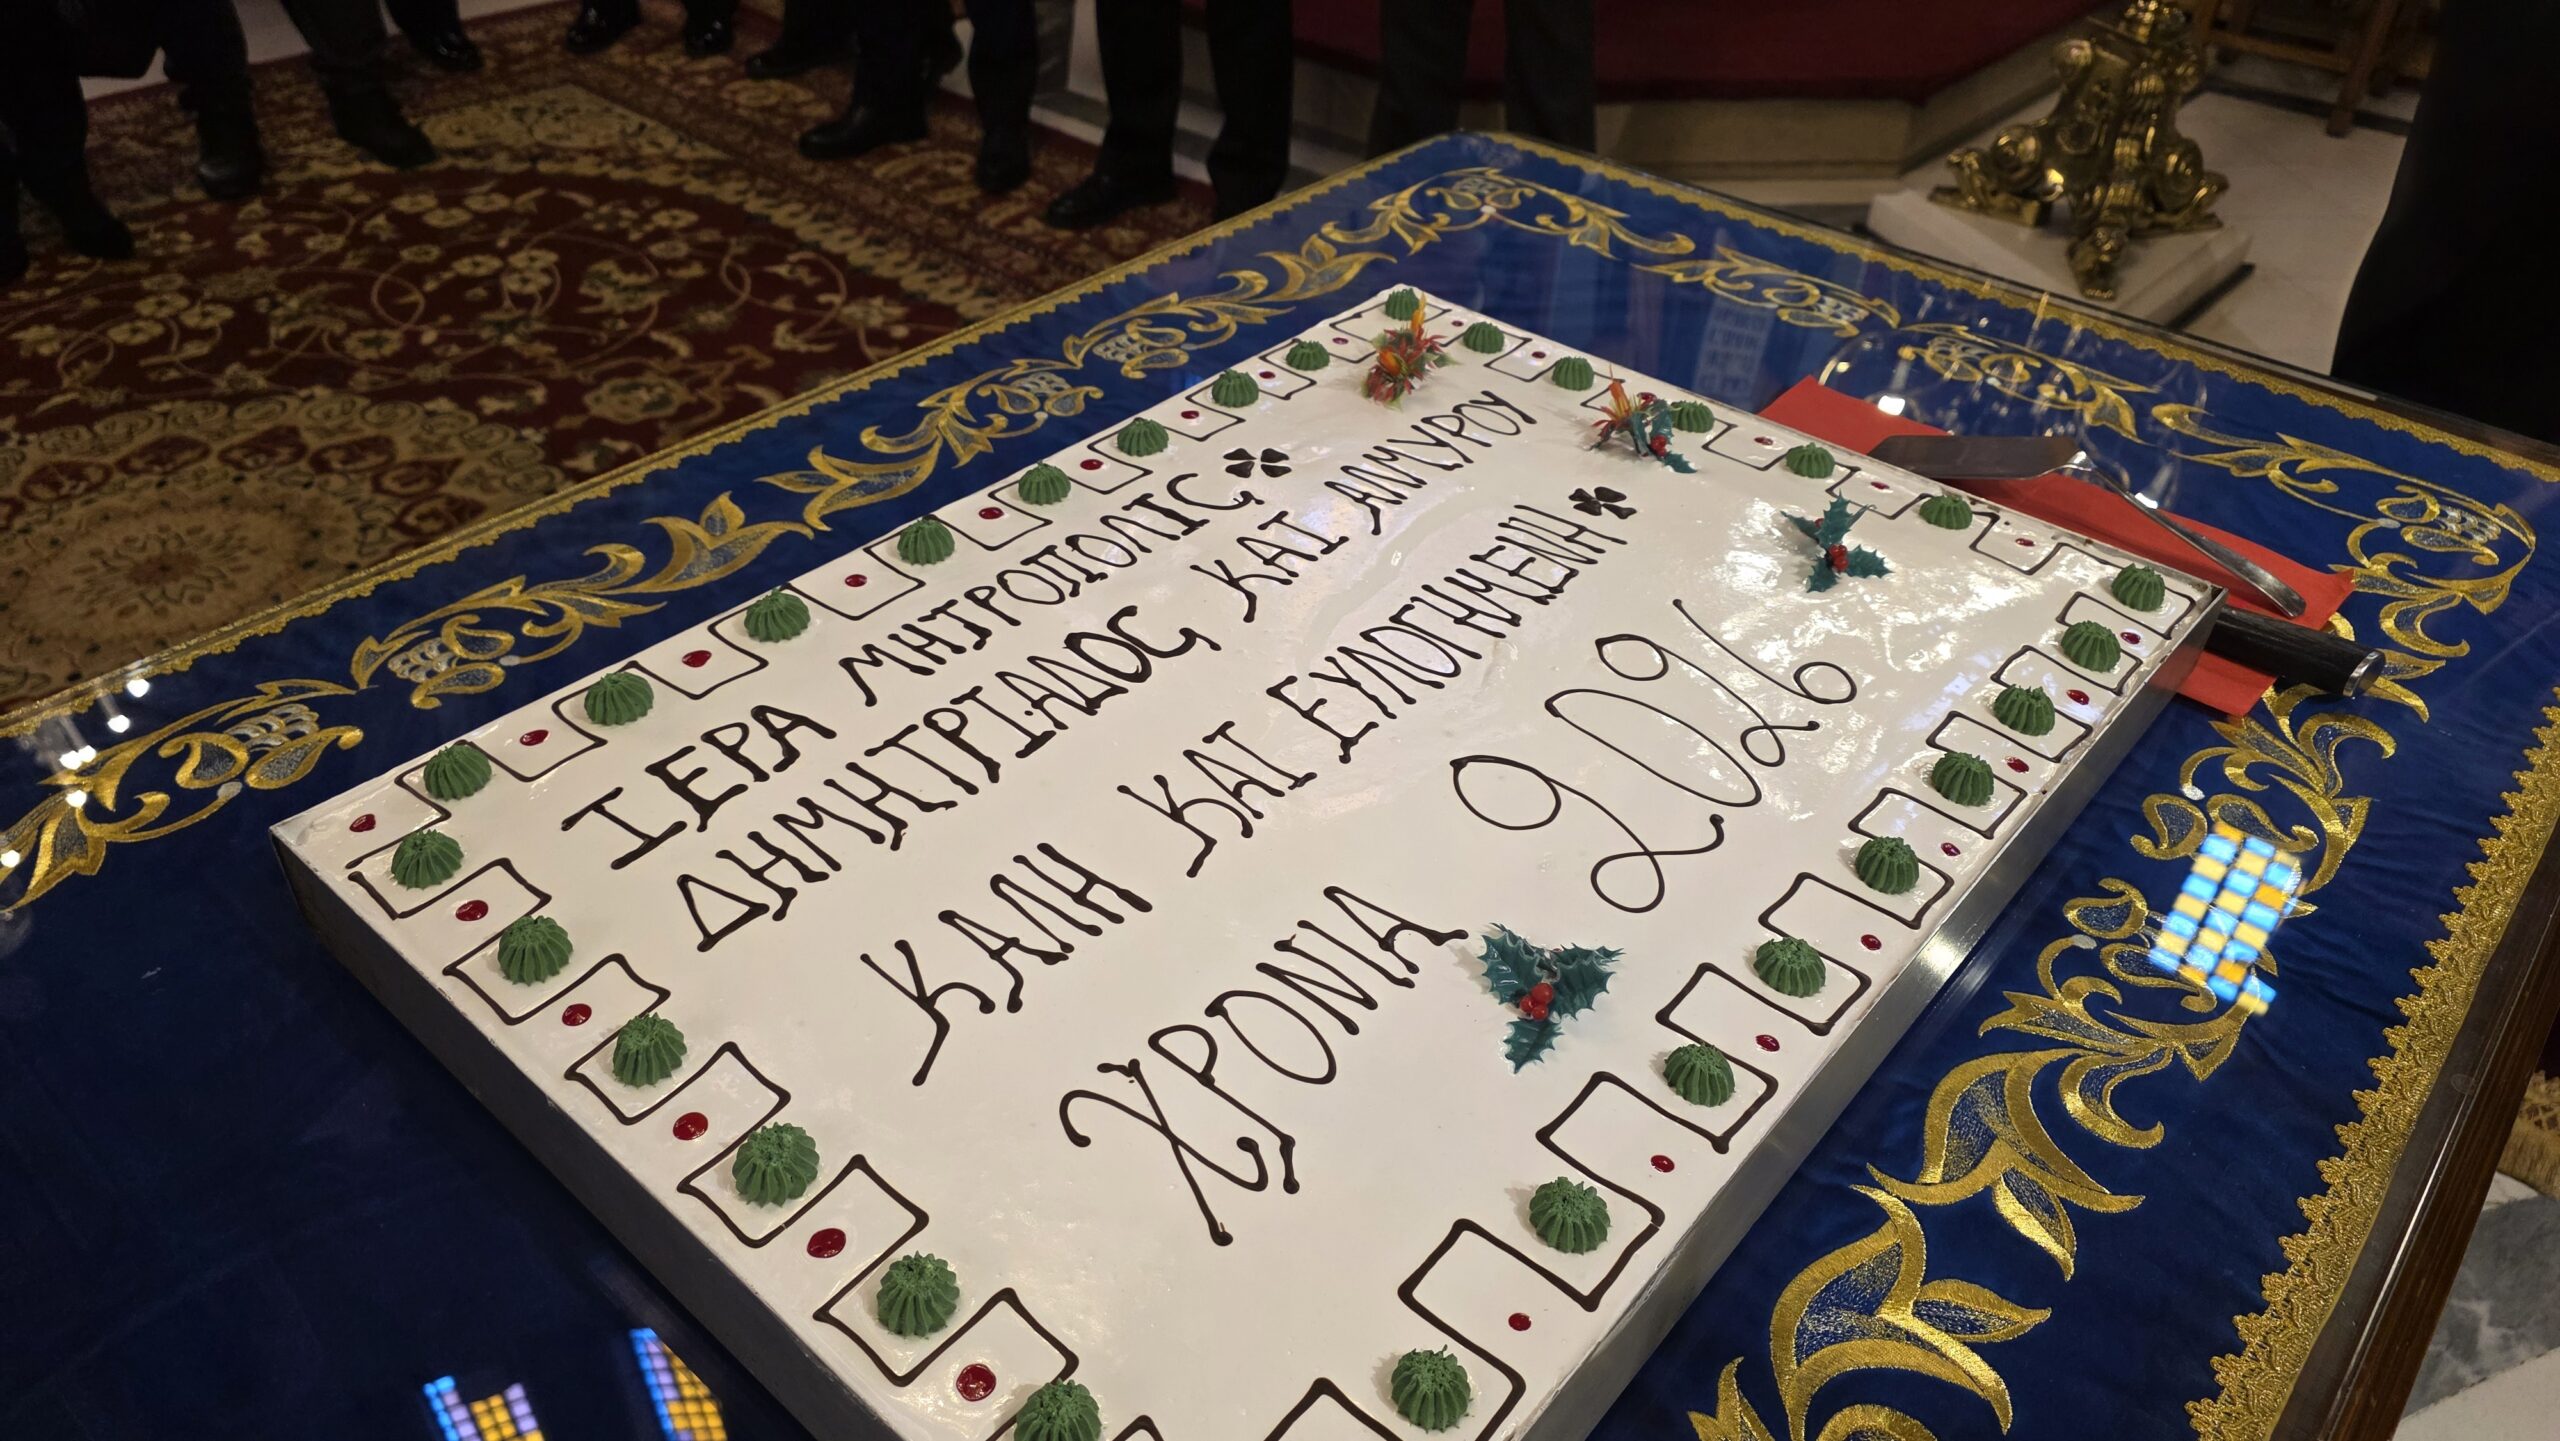 ΙΕΡΑ ΜΗΤΡΟΠΟΛΙΣ
ΔΗΜΗΤΡΙΑΔΟΣ ΚΑΙ ΑΛΜΥΡΟΥ
ΚΑΛΗ ΚΑΙ ΕΥΛΟΓΗΜΕΝΗ
ΧΡΟΝΙΑ 2026